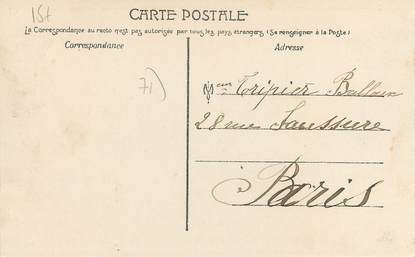 15t
CARTE POSTALE
La Correspondance au recto n'est pas autorisée par tous les pays étrangers (Se renseigner à la Poste)
Correspondance
Adresse
71)
Tripier
28 rue Saussure
Paris